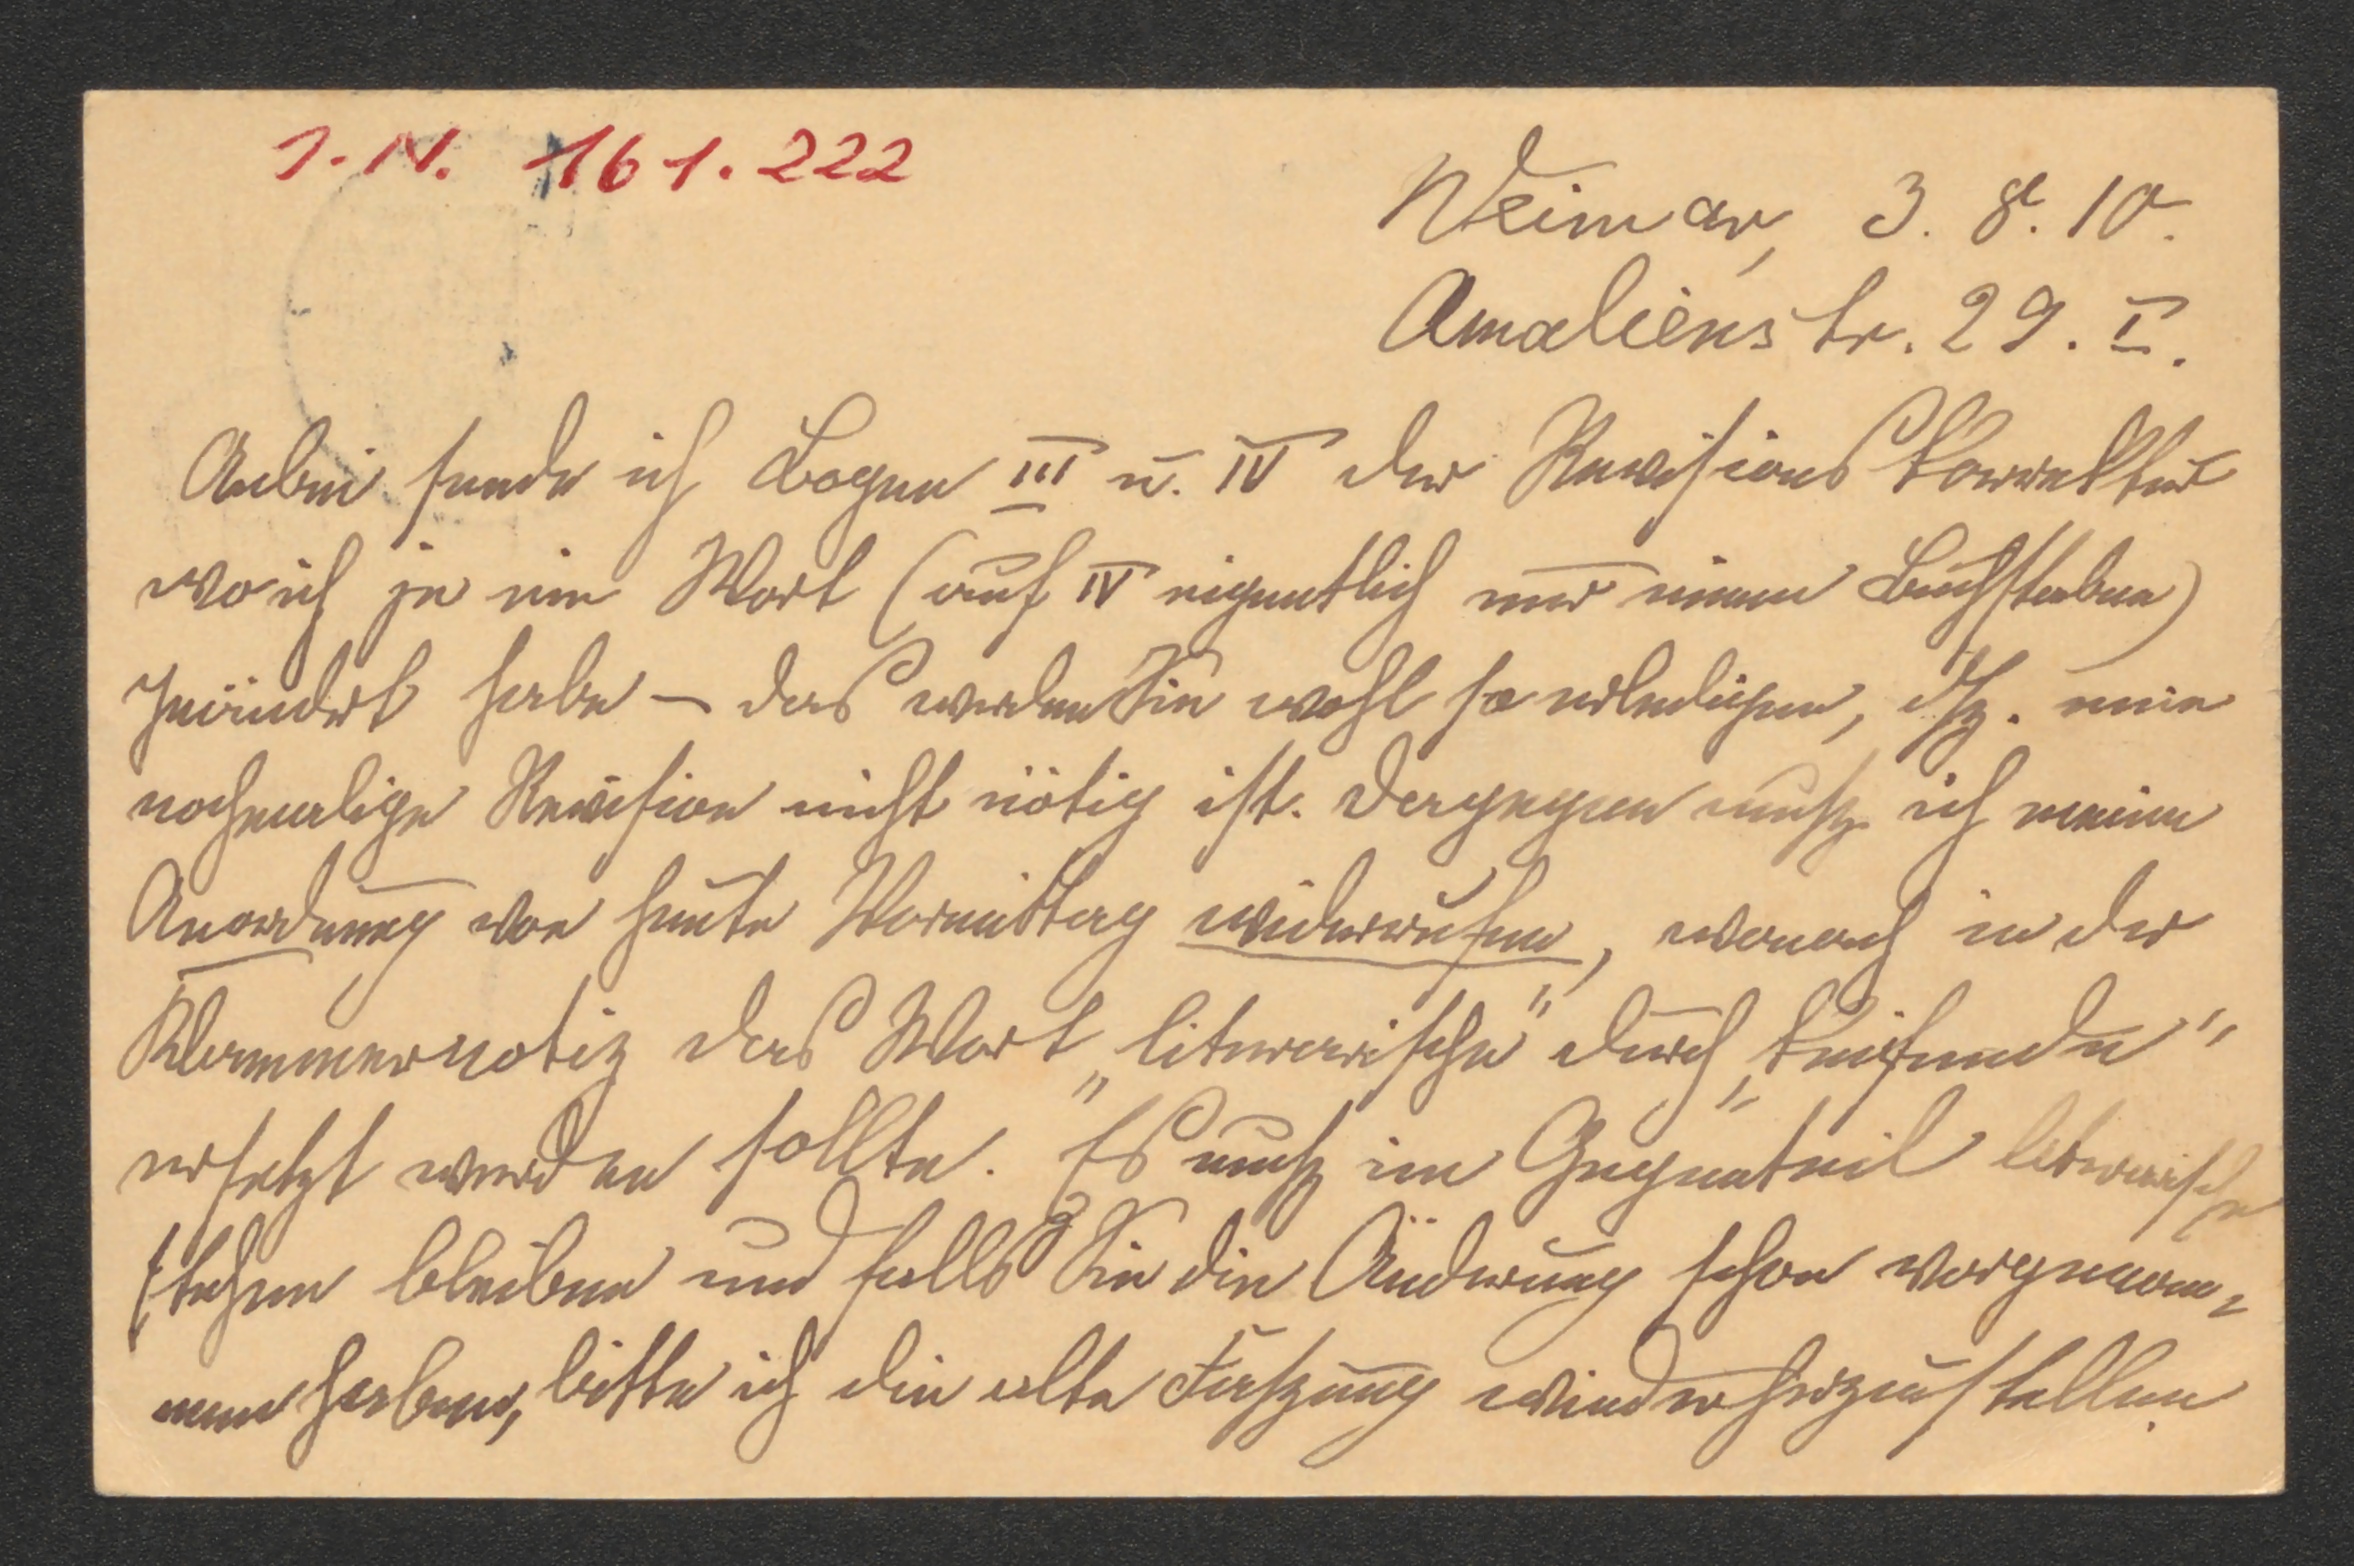 I. N. 161.222
Weimar, 3. 8. 10.
Amalienstr. 29. I.
Anbei sende ich Bogen III u. IV der Revisionskorrektur
wo ich je ein Wort (auf IV eigentlich nur einen Buchstaben)
geändert habe – das werden Sie wohl so erledigen, dß. eine
nochmalige Revision nicht nötig ist. Dagegen muß ich meine
Anordnung von heute Vormittag widerrufen, wonach in der
Klammernotiz das Wort „literarische" durch „
ersetzt werden sollte. Es muß im Gegenteil literarische
stehen bleiben und falls Sie die Änderung schon vorgenom-
men haben, bitte ich die alte Faßung wiederherzustellen